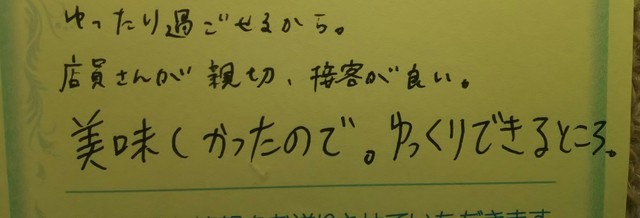 ゆったり過ごせるから。
店員さんが親切、接客が良い。
美味しかったので。ゆっくりできるところ。